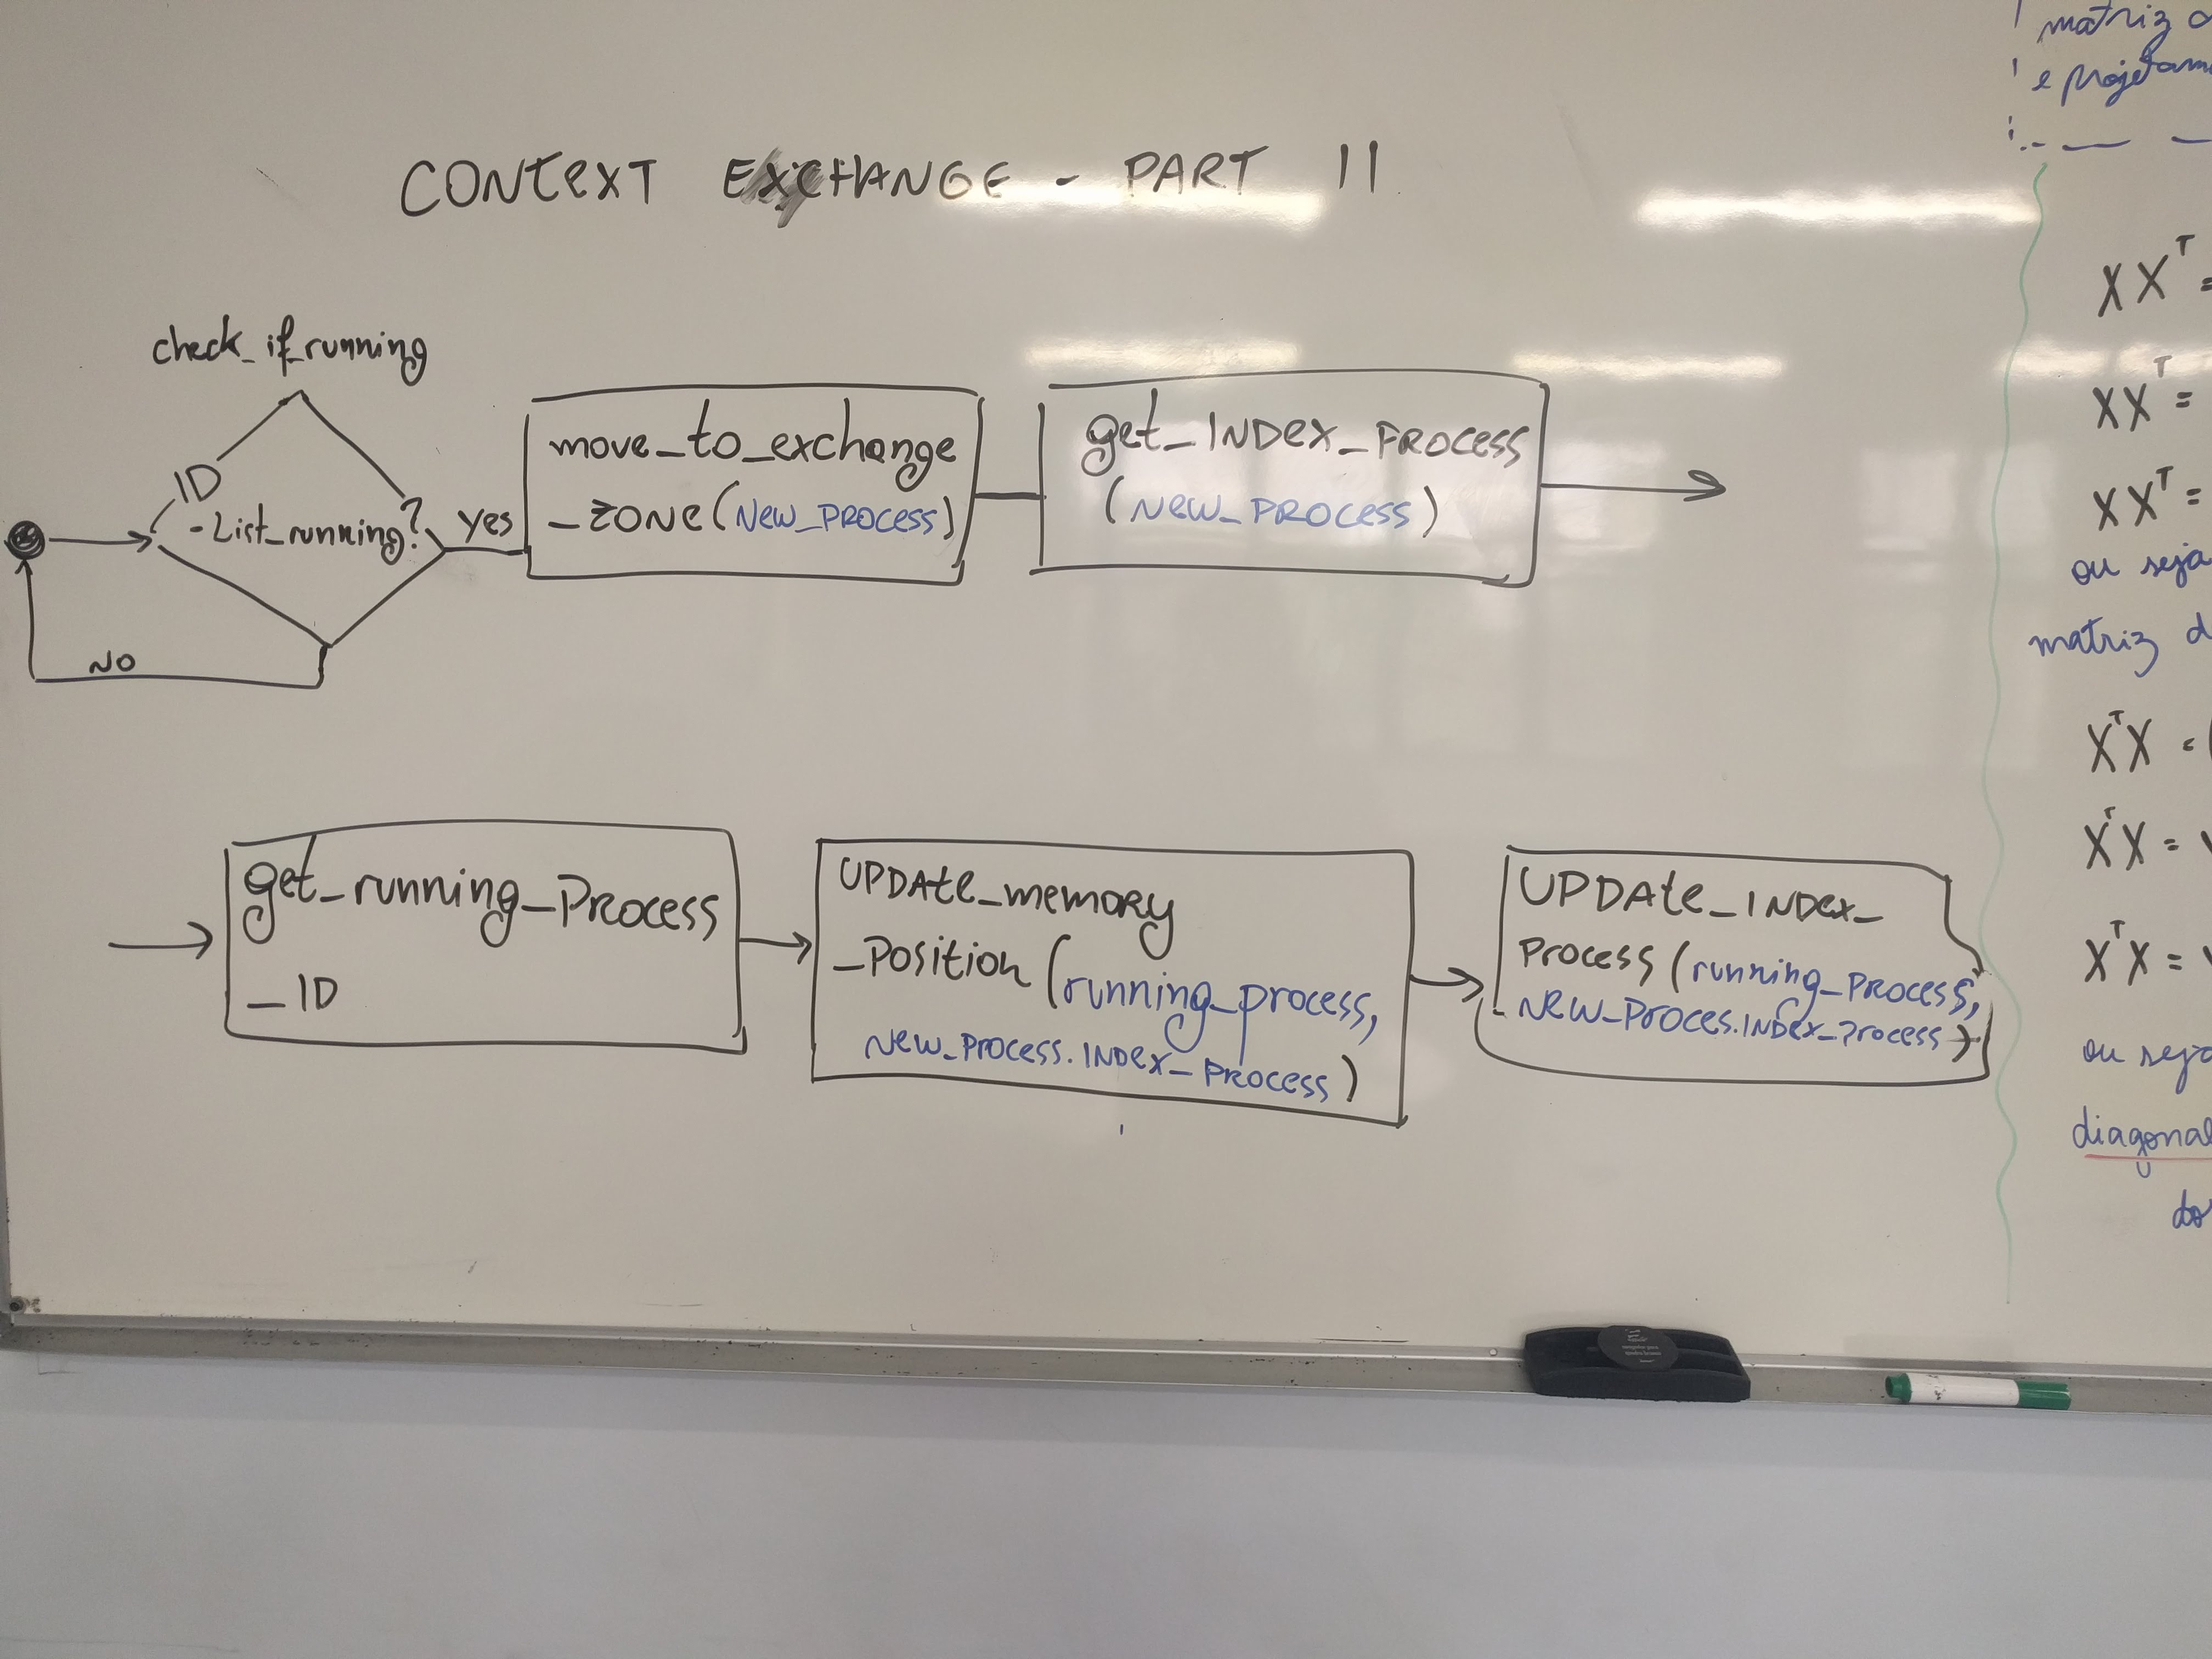 CONTEXT EXCHANGE - PART II
check_if_running
ID
-List_running?
yes
NO
move_to_exchange
_ZONE (New_PROCESS)
get_INDex_PROCess
(New_PROCess)
get_running_Process
_ID
UPDAte_memory
_Position (running_process,
New_Process.INDex_Process)
UPDAte_INDex_
Process (running_Process,
New_Proces.INDex_Process)
matriz
e
XXᵀ =
XXᵀ =
XXᵀ =
ou seja
matriz d
XᵀX =
XᵀX =
XᵀX =
ou seja
diagonal